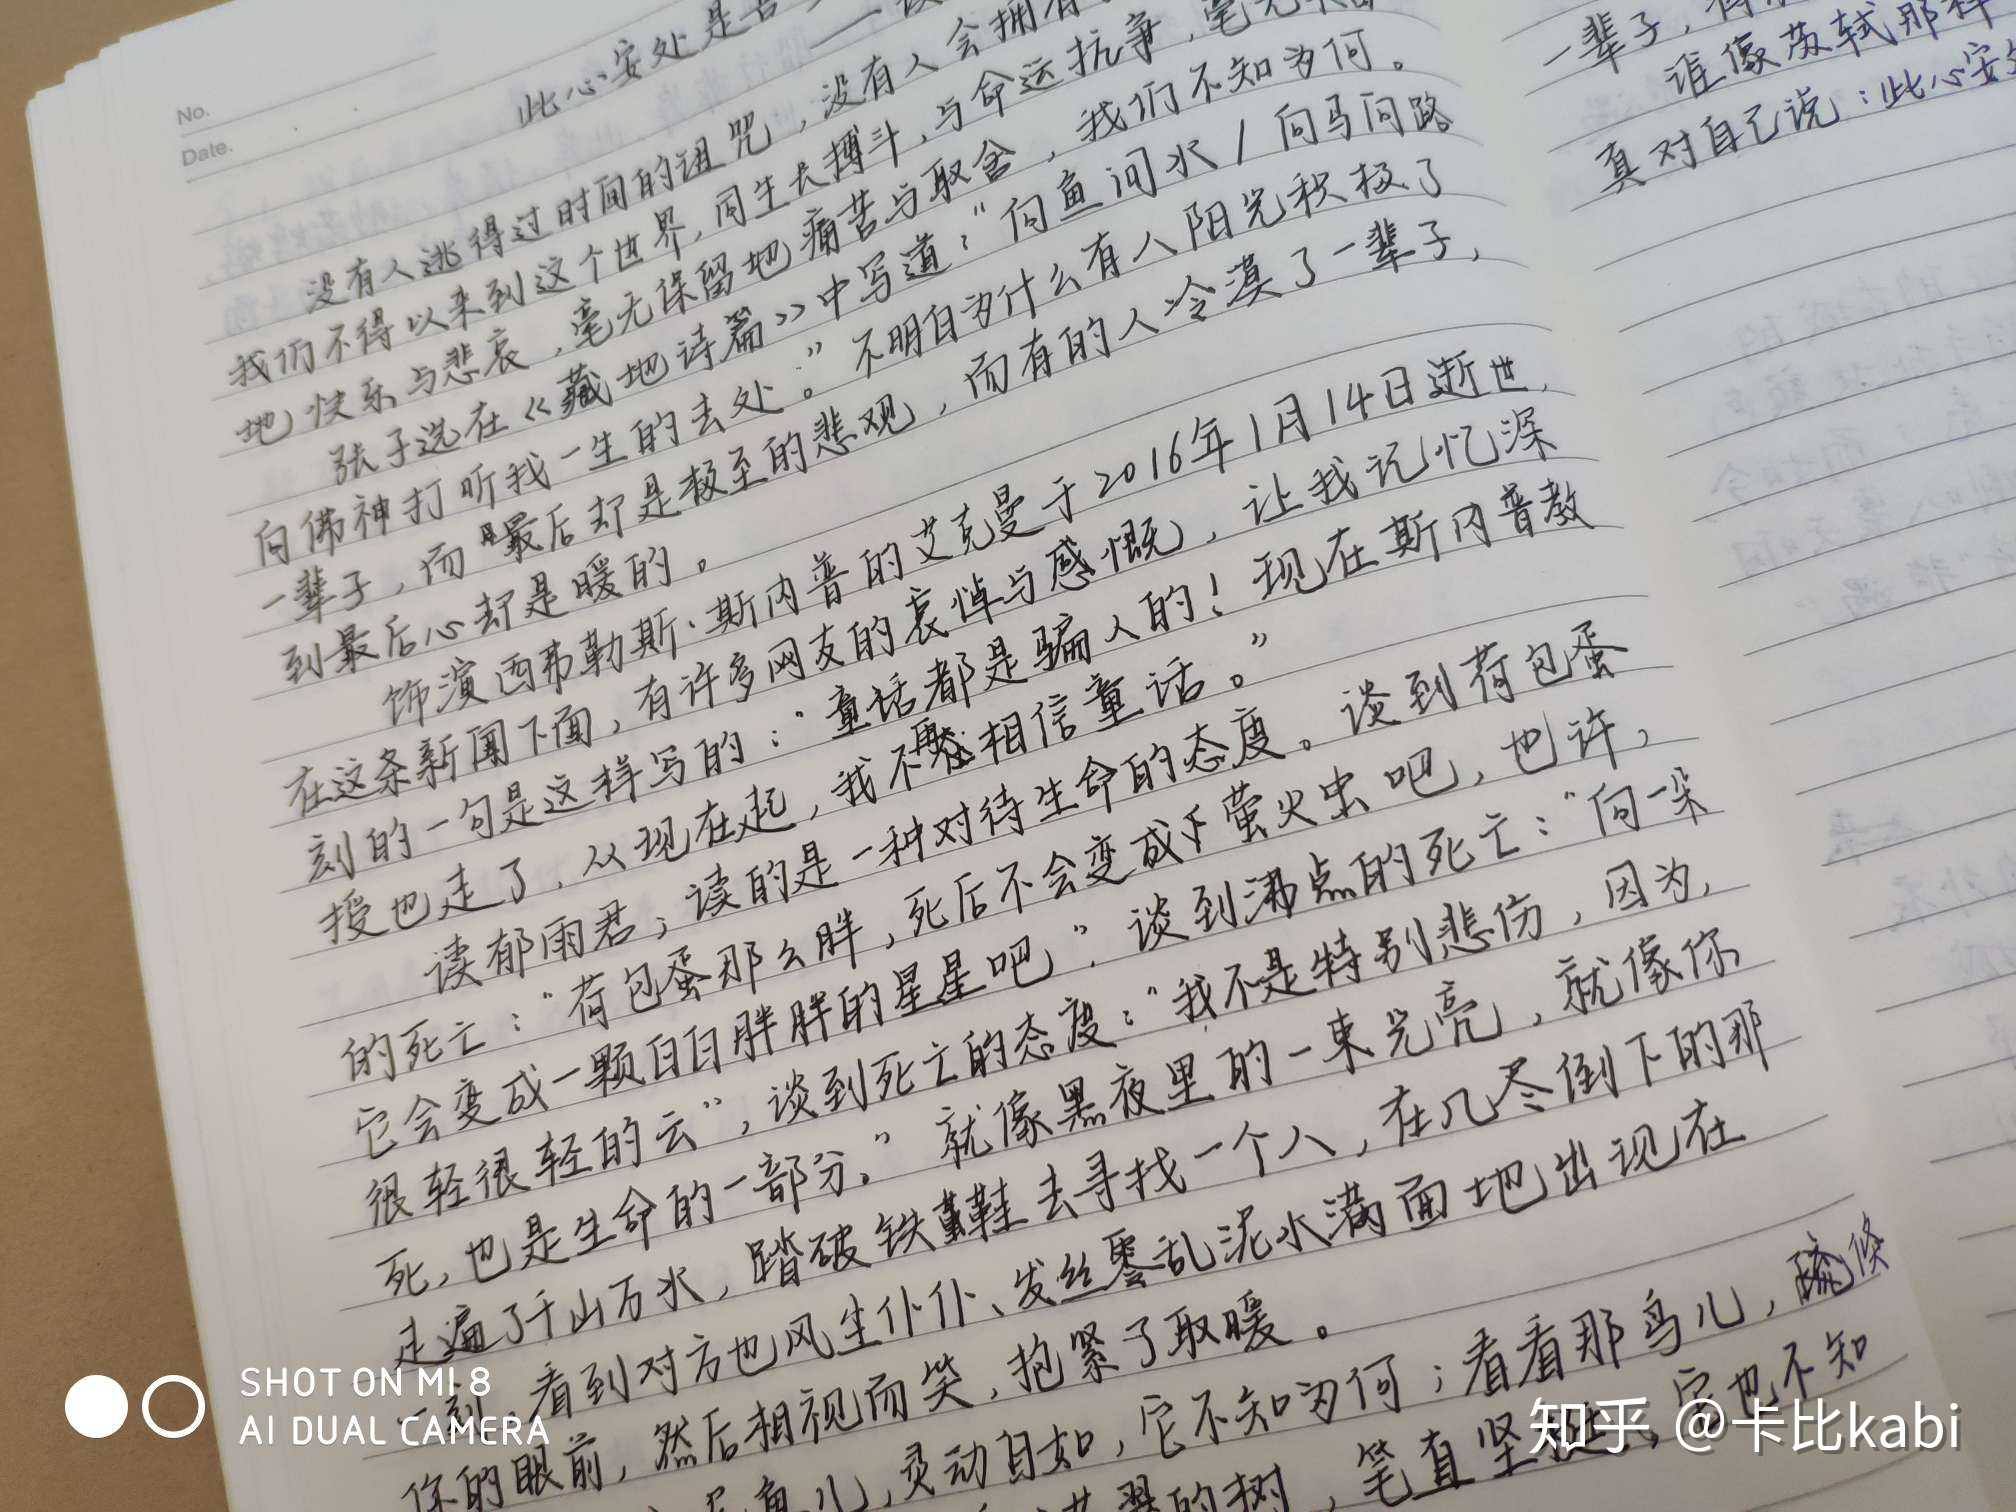 No.
Date.
此心安处是吾
没有人逃得过时间的诅咒，没有人会拥有
我们不得以来到这个世界，同生长搏斗，与命运抗争，毫无保留
地快乐与悲哀，毫无保留地痛苦与取舍，我们不知为何。
张子选在《藏地诗篇》中写道：“向鱼问水/向马问路
向佛神打听我一生的去处。”不明白为什么有人阳光积极了
一辈子，而最后却是极至的悲观，而有的人冷漠了一辈子，
到最后心却是暖的。
饰演西弗勒斯·斯内普的艾克曼于2016年1月14日逝世，
在这条新闻下面，有许多网友的哀悼与感慨，让我记忆深
刻的一句是这样写的：“童话都是骗人的！现在斯内普教
授也走了，从现在起，我不再相信童话。”
读郁雨君，读的是一种对待生命的态度。谈到荷包蛋
的死亡：“荷包蛋那么胖，死后不会变成萤火虫吧，也许，
它会变成一颗白白胖胖的星星吧”，谈到沸点的死亡：“向一朵
很轻很轻的云”，谈到死亡的态度：“我不是特别悲伤，因为，
死，也是生命的一部分。”就像黑夜里的一束光亮，就像你
走遍了千山万水，踏破铁鞋去寻找一个人，在几尽倒下的那
一刻，看到对方也风尘仆仆、发丝零乱泥水满面地出现在
你的眼前，然后相视而笑，抱紧了取暖。
鱼儿，灵动自如，它不知为何；看看那鸟儿，
的树，笔直坚挺，它也不知
一辈子，
谁像苏轼那样
真对自己说：此心安
SHOT ON MI 8
AI DUAL CAMERA
知乎 @卡比kabi